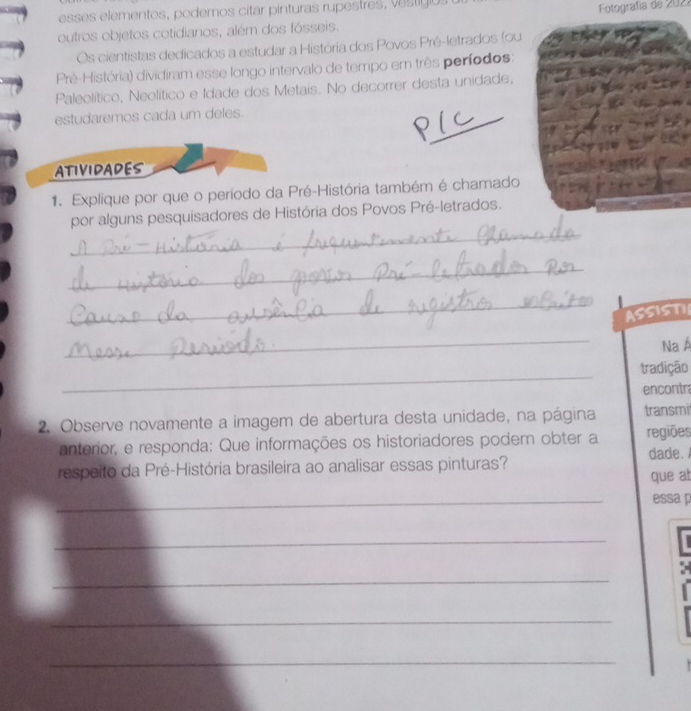 esses elementos, podemos citar pinturas rupestres, vestígios
Fotografia de 2022
outros objetos cotidianos, além dos fósseis.
Os cientistas dedicados a estudar a História dos Povos Pré-letrados (ou
Pré-História) dividiram esse longo intervalo de tempo em três períodos:
Paleolítico, Neolítico e Idade dos Metais. No decorrer desta unidade,
estudaremos cada um deles.
P/C
ATIVIDADES
1. Explique por que o período da Pré-História também é chamado
por alguns pesquisadores de História dos Povos Pré-letrados.
A Pré-História é frequentemente chamada
de História dos povos Pré-letrados Por
Causa da ausência de registros escritos
nesse Período.
ASSISTI
Na Á
tradição
encontra
transmi
2. Observe novamente a imagem de abertura desta unidade, na página
regiões
anterior, e responda: Que informações os historiadores podem obter a
dade.
respeito da Pré-História brasileira ao analisar essas pinturas?
que at
essa p